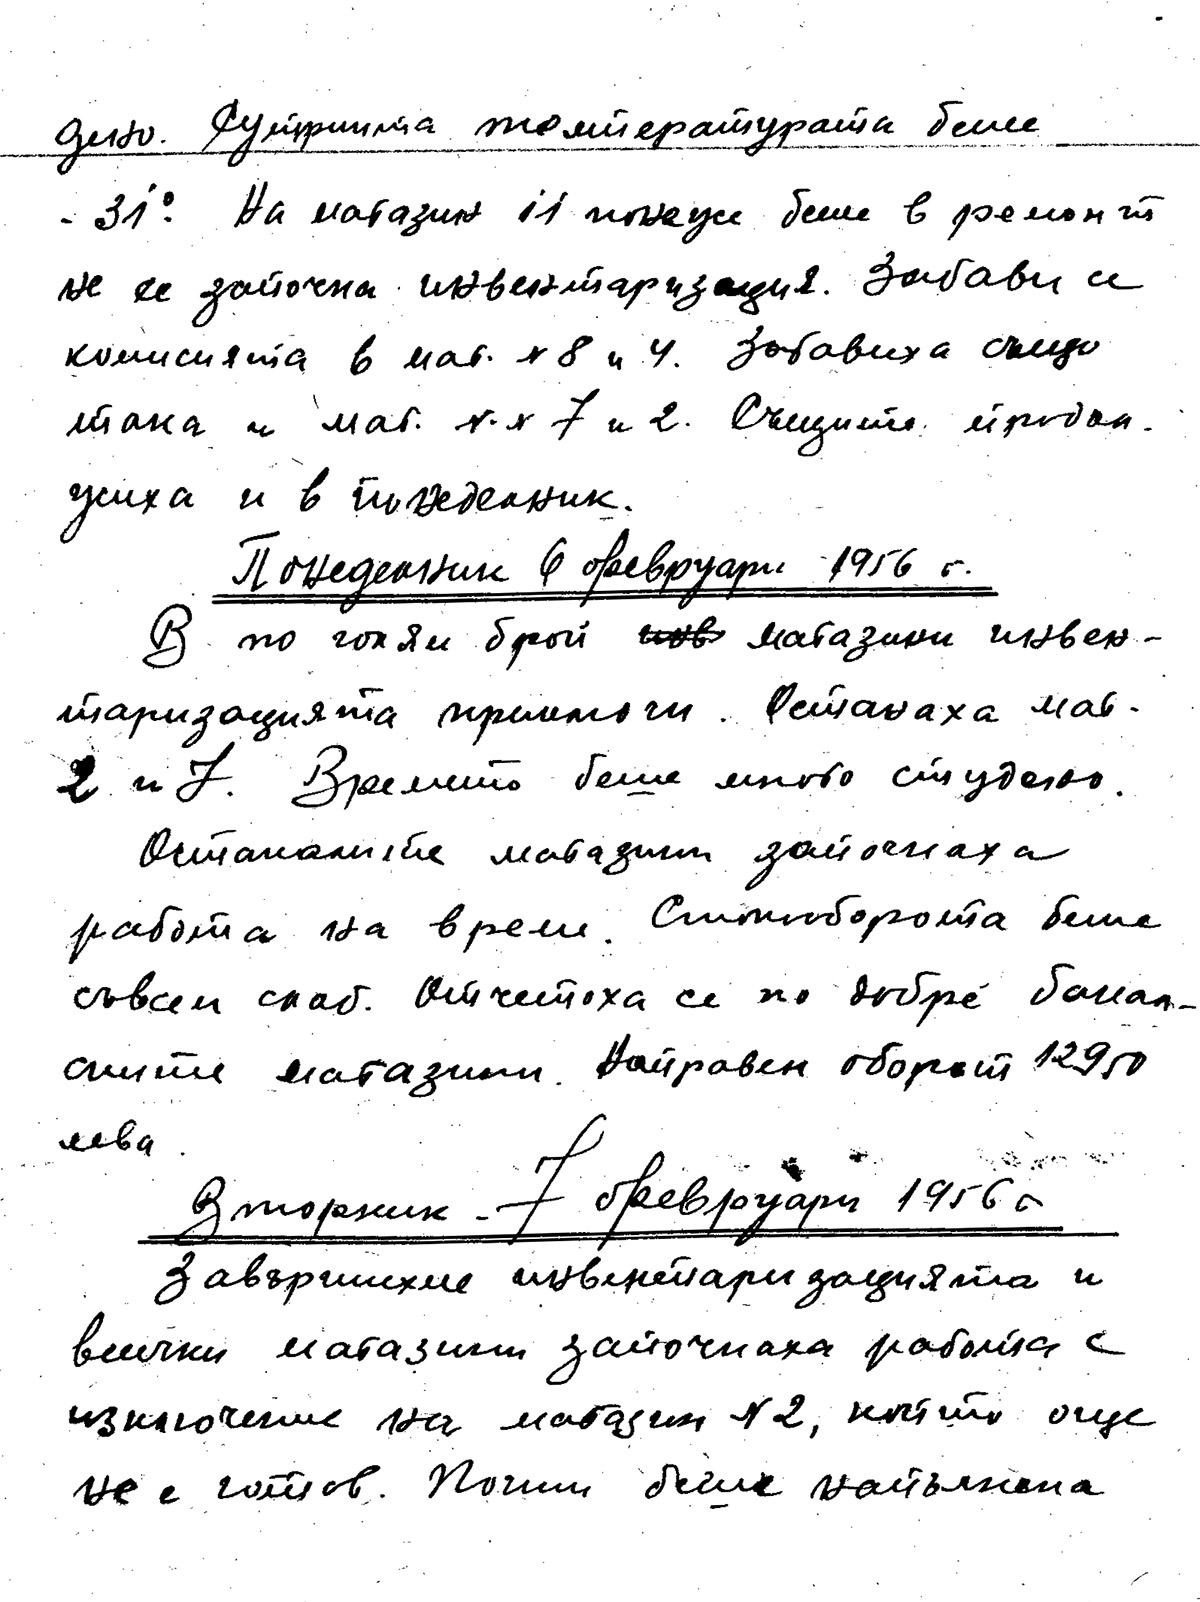 дено. Сутринта температурата беше
- 31°. На магазин 11 понеже беше в ремонт
не се започна инвентаризация. Забави се
комисията в маг. N 8 и 4. Забавиха също
така и маг. N. N 7 и 2. Същите продъл-
жиха и в понеделник.
Понеделник 6 февруари 1956 г.
В по голям брой инв магазини инвен-
таризацията приключи. Останаха маг.
2 и 7. Времето беше много студено.
Останалите магазини започнаха
работа на време. Стокооборота беше
съвсем слаб. Отчетоха се по добре бакал-
ските магазини. Направен оборот 12950
лева.
Вторник - 7 февруари 1956 г
Завършихме инвентаризацията и
всички магазини започнаха работа с
изключение на магазин N 2, който още
не е готов. Почти беше напълнена